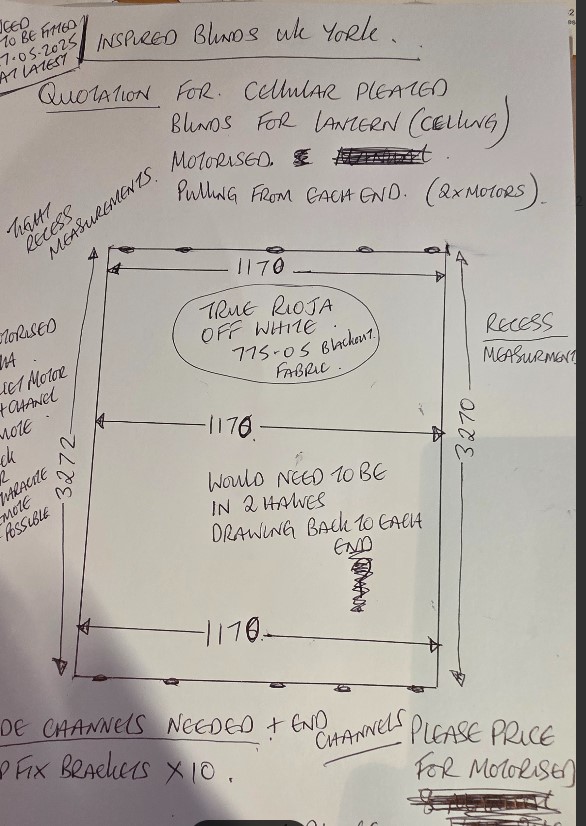 NEED
TO BE FITTED
7.05.2025
AT LATEST
INSPIRED BLINDS UK YORK.
QUOTATION FOR. CELLULAR PLEATED
BLINDS FOR LANTERN (CEILING)
MOTORISED.
PULLING FROM EACH END. (2x MOTORS).
TIGHT
RECESS
MEASUREMENTS.
1170
TRUE RIOJA
OFF WHITE
775-05 Blackout.
FABRIC.
RECESS
MEASURMENT
TORISED
MOTOR
CHANEL
3272
1170
3270
WOULD NEED TO BE
IN 2 HALVES
DRAWING BACK TO EACH
END
POSSIBLE
1170
DE CHANNELS NEEDED + END
CHANNELS
P FIX BRACKETS X10.
PLEASE PRICE
FOR MOTORISED